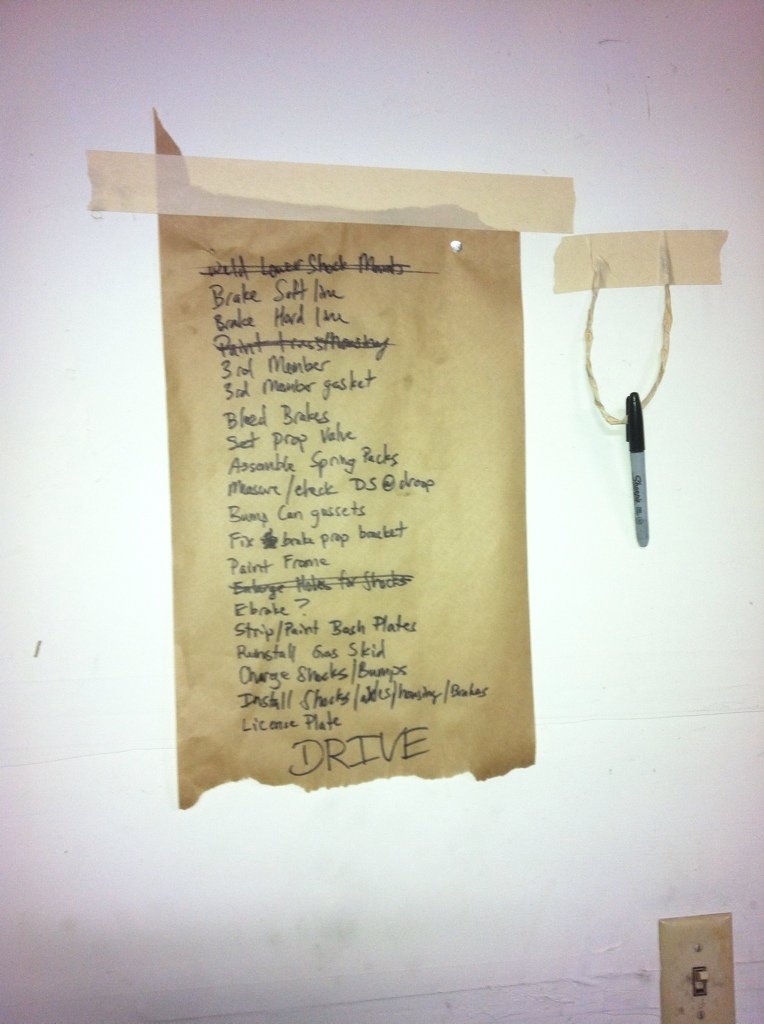 Weld Lower Shock Mounts
Brake Soft line
Brake Hard line
Paint truss/housing
3rd Member
3rd Member gasket
Bleed Brakes
Set prop Valve
Assemble Spring Packs
Measure/check DS @ droop
Bump Can gussets
Fix brake prop bracket
Paint Frame
Enlarge Holes for Shocks
Ebrake?
Strip/Paint Bash Plates
Reinstall Gas Skid
Charge Shocks/Bumps
Install Shocks/axles/housing/Brakes
License Plate
DRIVE
Sharpie